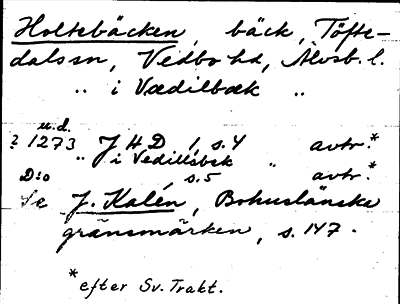 Holtebäcken, bäck, Töfte-
dals sn, Vedbo hd, Älvsb. l.
" i Vædilbæk "
u.d.
? 1273 JHD 1, s. 4 avtr.*
" i Vedilsbek " avtr.*
D:o , s. 5
Se J. Kalén, Bohuslänska
gränsmärken, s. 147.
* efter Sv. Trakt.